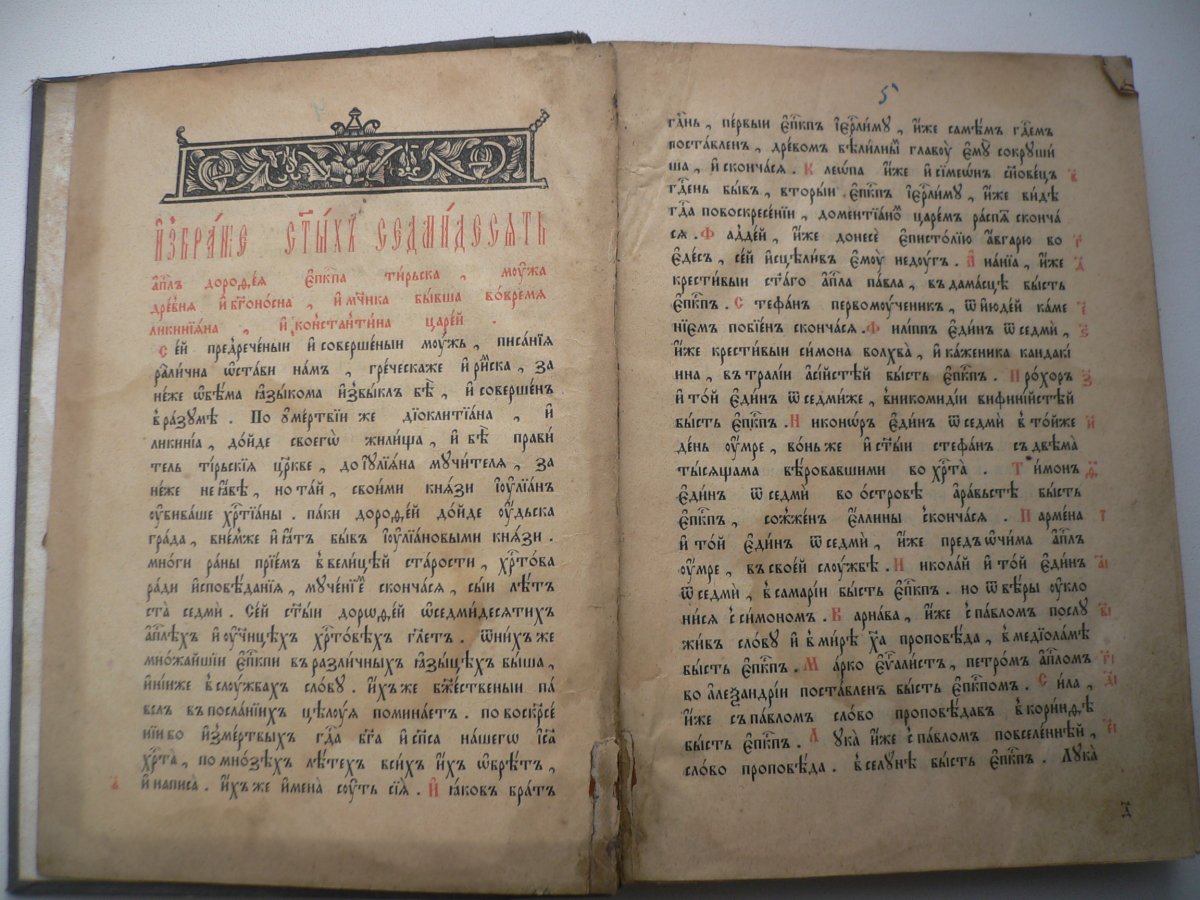 И҆збра́нїе ст҃ы́хъ седми́десѧть
а҆пⷭ҇лъ дороѳе́ѧ є҆пⷭ҇кпа ти́рьска , моу́жа
дре́внѧ и҆ бг҃оно́сна , и҆ мч҃ника бы́вша во́времѧ
ликинїѧ́на , и҆ конъстанти́на царе́й .
Се́й предрече́ныи и҆ соверше́ныи моу́жь , писа́нїѧ
разли́чна ѡ҆ста́ви на́мъ , гре́ческаже и҆ ри́мска , за
не́же ѡ҆бѣ́ма ꙗ҆зы́кома и҆звы́клъ бѣ̀ , и҆ соверше́нъ
в̾ра́зумѣ . По оу҆ме́ртвїи же дїоклитїа́на , и҆
лики́нїа , до́йде своегѡ̀ жили́ща , и҆ бѣ̀ прави́
тель ті́рьскїѧ цр҃кве , до і҆улїѧ́на мучи́телѧ , за
не́же не ꙗ҆́вѣ , но та́й , свои́ми кнѧ̑зи і҆оулїа́нъ
оу҆бива́ше хрⷭ҇тїа́ны . па́ки дороѳе́й до́йде оу҆́дьска
гра́да , вне́мже и҆ ꙗ҆́тъ бы́въ і҆оулїа́новыми кнѧ̑зи .
мно́ги ра́ны прїе́мъ в̾вели́цѣй ста́рости , хрⷭ҇то́ва
ра́ди и҆сповѣ́данїѧ , муче́нїемъ сконча́сѧ , сы́и лѣ́тъ
ста̀ седмѝ . Се́й ст҃ы́и дорѡѳе́й ѡ҆седми́десѧтихъ
а҆пⷭ҇лѣхъ и҆ оу҆чн҃цѣ́хъ хрⷭ҇то́вѣхъ гл҃етъ . ѿни́хъ же
мно́жайшїи є҆пⷭ҇кпи въ разли́чныхъ ꙗ҆зы́цѣхъ бы́ша ,
и҆ні́иже в̾слоу́жбахъ сло́ву . и҆́хъ же бж҃е́ственыи па́
велъ въ посла́нїихъ цѣлоуѧ̀ помина́етъ . по воскрⷭ҇се́
нїи бо и҆зме́ртвыхъ гдⷭ҇а бг҃а и҆ сп҃са на́шегѡ і҆с҃а
хрⷭ҇та̀ , по мно́зѣхъ лѣ́техъ всѝхъ и҆́хъ ѡ҆брѣ́тъ ,
и҆ написа̀ . и҆́хъ же и҆мена̀ соу́ть сїѧ̑ . И҆ ꙗ҆́ковъ бра́тъ
а҃
5
гдⷭ҇нь , пе́рвыи є҆пⷭ҇кпъ і҆ерⷭ҇ли́му , и҆́же самѣ́мъ гдⷭ҇емъ
поста́вленъ , дре́вомъ бѣли́лны̑м главоу̀ є҆мꙋ̀ сокруши́
ша , и҆ сконча́сѧ . Клеѡ́па и҆́же и҆ сїмеѡ́нъ сн҃о́вецъ
гдⷭ҇ень бы́въ , вторы́и є҆пⷭ҇кпъ і҆ерⷭ҇ли́му , и҆́же ви́дѣ
гдⷭ҇а повоскресе́нїи , доментїа́номъ царе́мъ распѧ́тъ сконча́
сѧ . Фадде́й , и҆́же донесѐ є҆писто́лїю а҆вга́рю во
є҆де́съ , се́й и҆сцѣли́въ є҆моу̀ неду́гъ . А҆на́нїа , и҆́же
крести́выи ст҃а́го а҆пⷭ҇ла па́вла , въ дама́сцѣ бы́сть
є҆пⷭ҇кпъ . Стефа́нъ первомоу́ченикъ , ѿ і҆юде́й ка́ме
нїемъ побїе́нъ сконча́сѧ . Фили́ппъ є҆ди́нъ ѿ седмѝ ,
и҆́же крести́выи си́мона волхва̀ , и҆ ка́женика кандакі́
ина , въ тра́лїи а҆сі́йстѣй бы́сть є҆пⷭ҇кпъ . Про́хоръ
и҆ то́й є҆ди́нъ ѿ седми́же , в̾никоми́дїи вифині́йстѣй
бы́сть є҆пⷭ҇кпъ . Никонѡ́ръ є҆ди́нъ ѿ седмѝ в̾ то́йже
де́нь оу҆́мре , во́ньже и҆ ст҃ы́и стефа́нъ съ двѣма̀
ты́сѧщама вѣ́ровавшими во хрⷭ҇та̀ . Ти́монъ
є҆ди́нъ ѿ седмѝ во о҆́стровѣ а҆ра́вьстѣ бы́сть
є҆пⷭ҇кпъ , сожже́нъ є҆́ллины сконча́сѧ . Парме́на
и҆ то́й є҆ди́нъ ѿ седмѝ , и҆́же предъ ѻ҆чи́ма а҆пⷭ҇лъ
оу҆́мре , въ свое́й слоу́жбѣ . Никола́й и҆ то́й є҆ди́нъ
ѿ седмѝ , в̾самарі́и бы́сть є҆пⷭ҇кпъ . но ѿ вѣ́ры оу҆кло
ни́сѧ с̾ си́мономъ . Варна́ва , и҆́же с̾ па́вломъ послу
жи́въ сло́ву и҆ в̾ ми́рѣ хⷭ҇а проповѣ́да , в̾ медїола́мѣ
бы́сть є҆пⷭ҇кпъ . Ма́рко є҆ѵⷢ҇али́стъ , петро́мъ а҆пⷭ҇ломъ
во а҆леѯандрі́и поста́вленъ бы́сть є҆пⷭ҇кпомъ . Си́ла ,
и҆́же съ па́вломъ сло́во проповѣ́давъ в̾ кори́нѳѣ
бы́сть є҆пⷭ҇кпъ . Лука̀ и҆́же с̾ па́вломъ повселе́ннѣй ,
сло́во проповѣ́да . в̾ селу́нѣ бы́сть є҆пⷭ҇кпъ . Лука̀